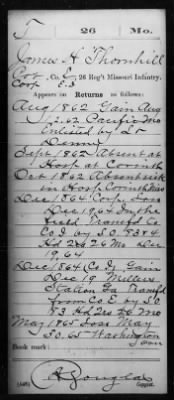 T 26 Mo.
James H Thornhill
Co. , 26 Reg't Missouri Infantry.
Corp E.I
Appears on Returns as follows:
Aug 1862 Gain Aug
12.62 Pacific Mo
Enlisted by Lt
Denny
Sept 1862 Absent at
Hosp at Corinth
Oct 1862 Absent sick
in Hosp. Corinth Miss
Dec 1864 Corp. Loss
Dec 1964 In the
field Transf to
Co I by S.O. 83 & 4.
Hd Qrs 26 Mo Dec
19, 64
Dec 1864 (Co I) Gain
Dec 19 Millers
Station Ga Transf
from Co E by S.O.
83 Hd Qrs 26 Mo
May 1865 Loss May
30, 65 Washington
Book mark:
Douglas
(546) Copyist.